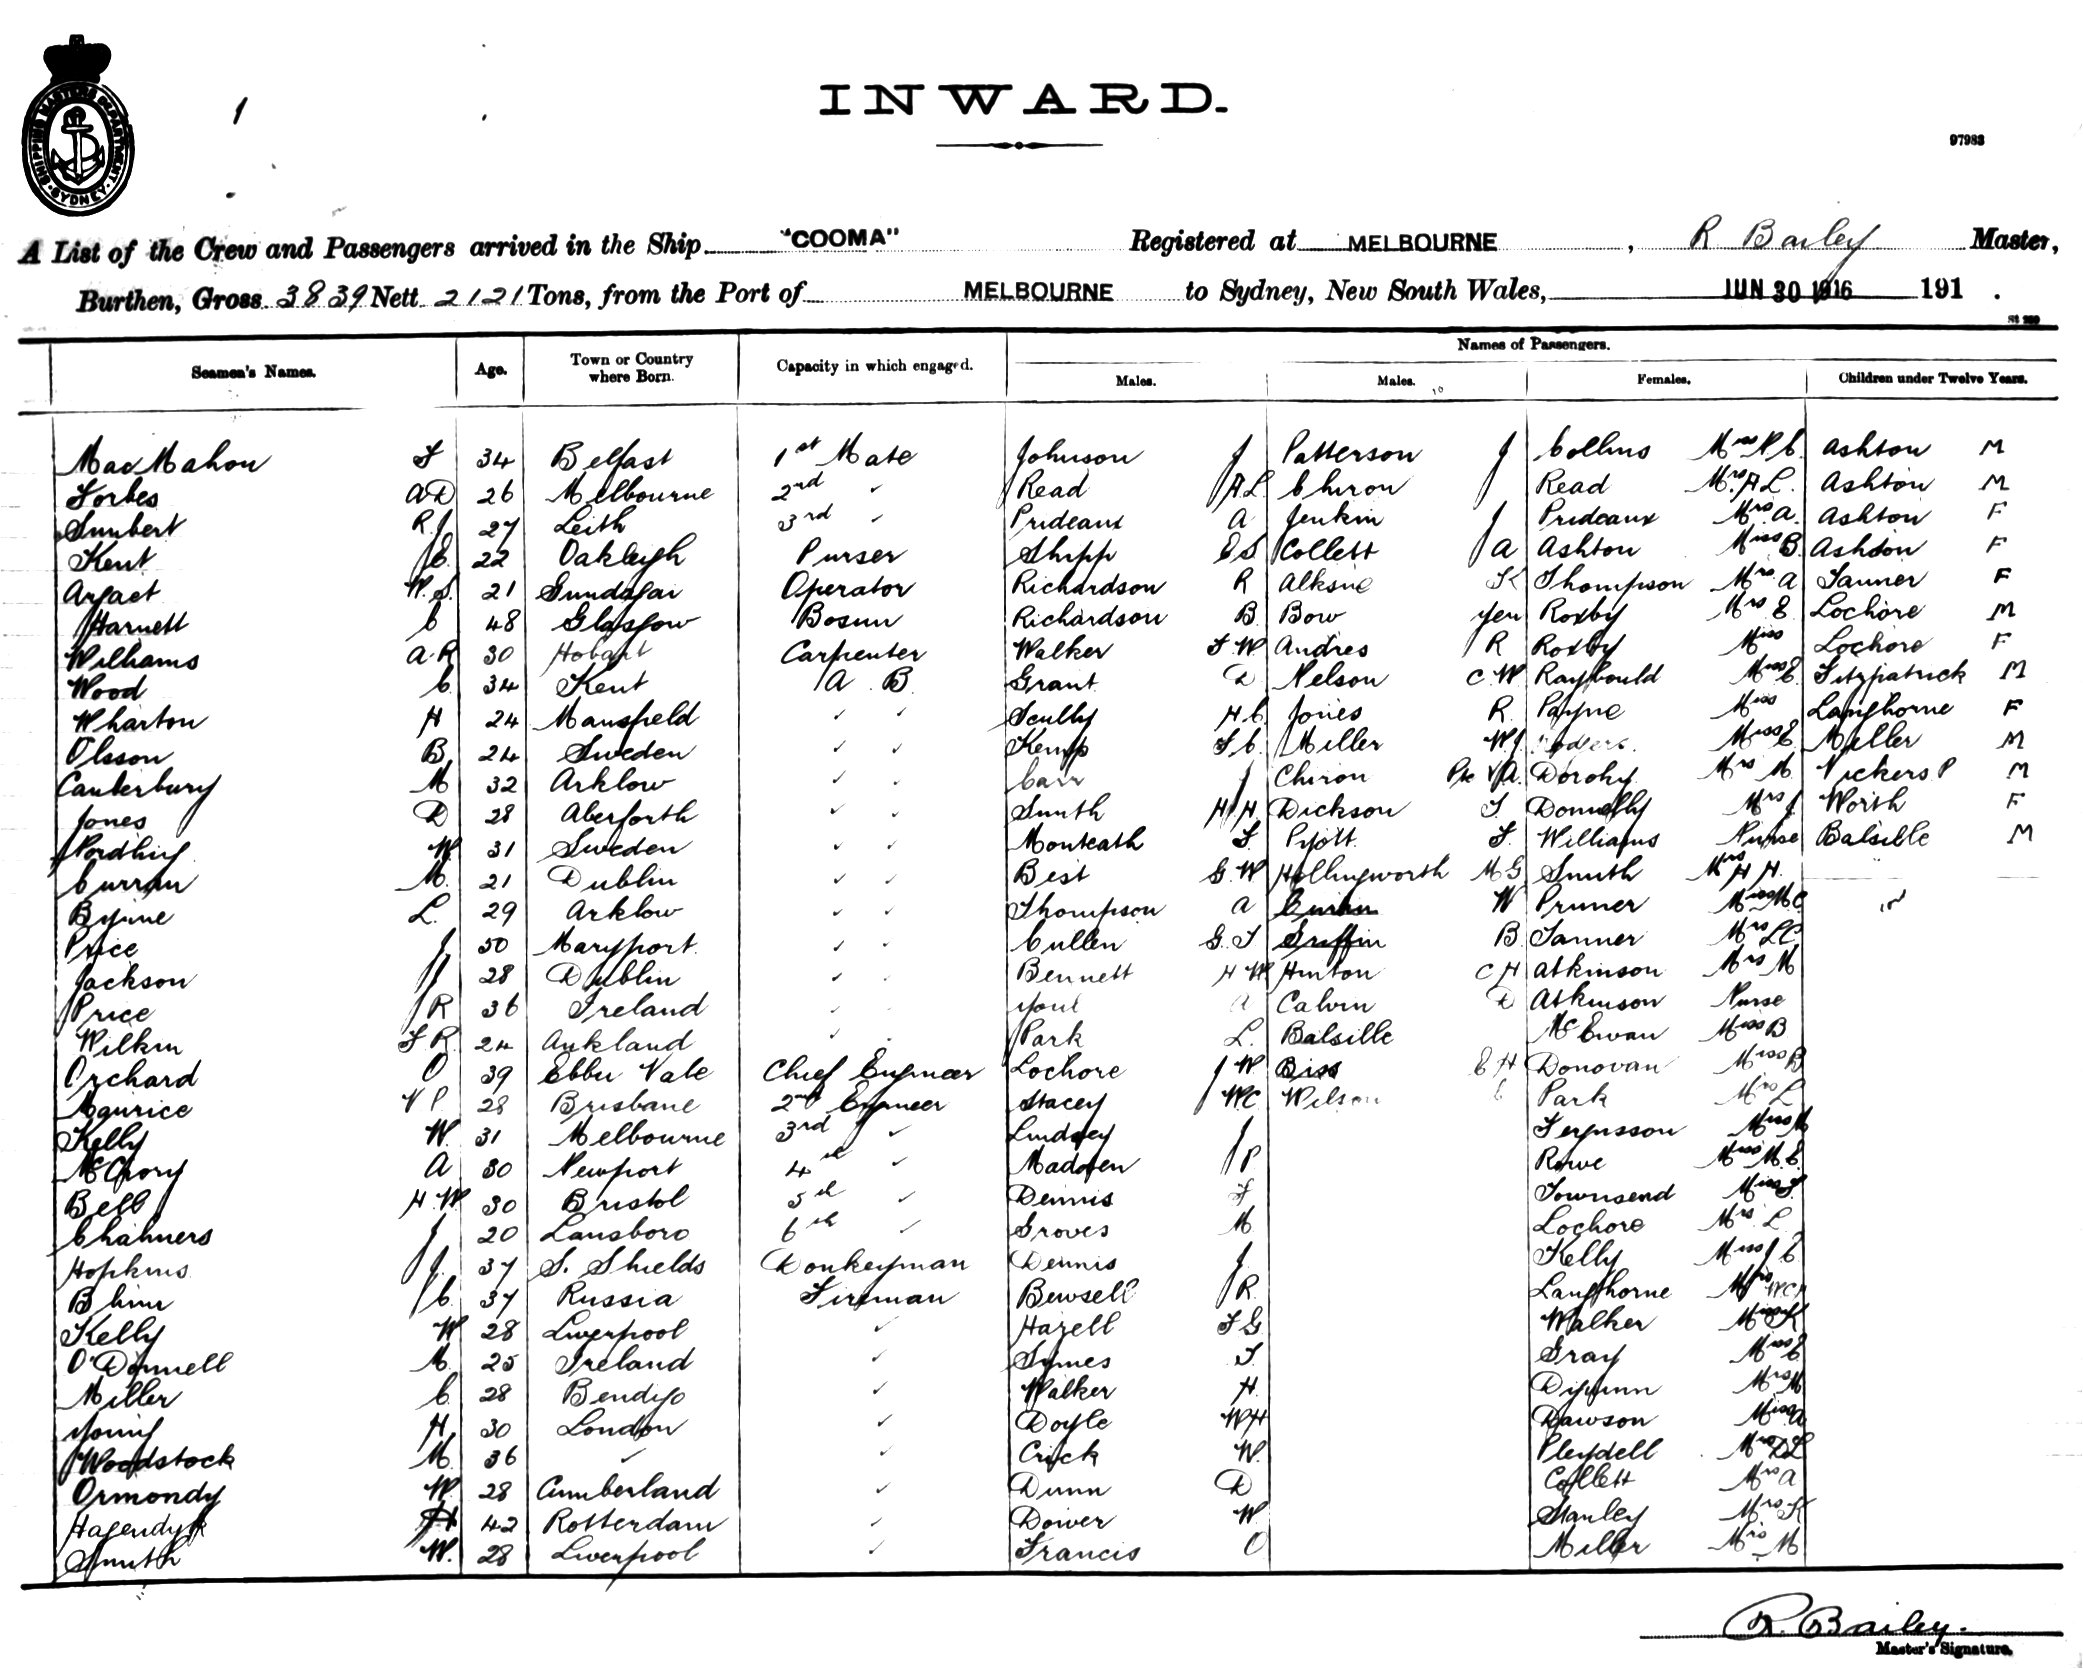 SHIPPING MASTERS DEPARTMENT. SYDNEY
1
INWARD.
97983
A List of the Crew and Passengers arrived in the Ship "COOMA" Registered at MELBOURNE, R Bailey Master,
Burthen, Gross 3839 Nett 2121 Tons, from the Port of MELBOURNE to Sydney, New South Wales, JUN 30 1916 191 .
Names of Passengers.
Seamen's Names. Age. Town or Country where Born. Capacity in which engaged. Males. Males. Females. Children under Twelve Years.
MacMahon F 34 Belfast 1st Mate Johnson J Patterson J Collins Ashton M
Forbes A D 26 Melbourne 2nd ✓ Read A L Chiron Read Mrs A L. Ashton M
R J 27 Leith 3rd ✓ Prideaux A Jenkin J Prideaux Mrs A. Ashton F
Kent E. 22 Oakleigh Purser Shipp E S Collett A Ashton Miss B. Ashton F
W. S. 21 Operator Richardson R Alksne K Thompson Mrs A Tanner F
Harnett C 48 Glasgow Bosun Richardson B. Bow Yen Roxby Mrs E Lochore M
Williams A. R 30 Hobart Carpenter Walker F W Andres R Roxby Miss Lochore F
Wood C. 34 Kent A. B. Grant D Nelson C. W Raybould Miss E Fitzpatrick M
Wharton H 24 Mansfield ✓ ✓ Scully H C. Jones R. Payne Miss Langhorne F
Olsson B 24 Sweden ✓ ✓ Kemp F C. Miller W J Miss E Miller M
Canterbury M 32 Arklow ✓ ✓ Carr J Chiron Dorohy Mrs M Vickers P M
Jones D 28 Aberforth ✓ ✓ Smith H H Dickson T. Donnelly Mrs J Worth F
W 31 Sweden ✓ ✓ Monteath F. Pyott F. Williams Nurse Balsille M
Curran M. 21 Dublin ✓ ✓ Best G. W Hollingworth M G Smith Mrs H H.
Byrne L. 29 Arklow ✓ ✓ Thompson A Curran W Pruner Miss M C
Price J 50 Maryport ✓ ✓ Cullen G. T Griffin B. Tanner Mrs L C
Jackson J 28 Dublin ✓ ✓ Bennett H W Hinton C H Atkinson Mrs M
Price R 36 Ireland ✓ ✓ Youl A Calvin D Atkinson Nurse
Wilkin F R. 24 Aukland ✓ ✓ Park L. Balsille McEwan Miss B
Orchard O 39 Ebbu Vale Chief Engineer Lochore J W Biss E H Donovan Miss B
Maurice V P 28 Brisbane 2nd Engineer Stacey W C Wilson C Park Mrs L
Kelly W. 31 Melbourne 3rd ✓ Lindsey J Fergusson Miss M
A 30 Newport 4th ✓ Madden P Rowe Miss M. E.
Bell H. W 30 Bristol 5th ✓ Dennis F Townsend Miss
Chalmers J 20 Lansboro 6th ✓ Groves M Lochore Mrs. L
Hopkins J. 37 S. Shields Donkeyman Dennis J. Kelly Miss J E
C. 37 Russia Fireman Bewsell R. Langhorne Mrs W C
Kelly W 28 Liverpool ✓ Hazell F G Walker Miss
O'Donnell M. 25 Ireland ✓ Symes T. Gray Miss E
Miller C. 28 Bendigo ✓ Walker H. Mrs M
Young H 30 London ✓ Doyle W H Dawson Miss A
Woodstock M. 36 ✓ ✓ Crick W. Pleydell Mrs D L
Ormondy W. 28 Cumberland ✓ Dunn D Collett Mrs A
Hagendyk H 42 Rotterdam ✓ Dower W Stanley Mrs K
Smith W. 28 Liverpool ✓ Francis O Miller Mrs M
R. Bailey.
Master's Signature.